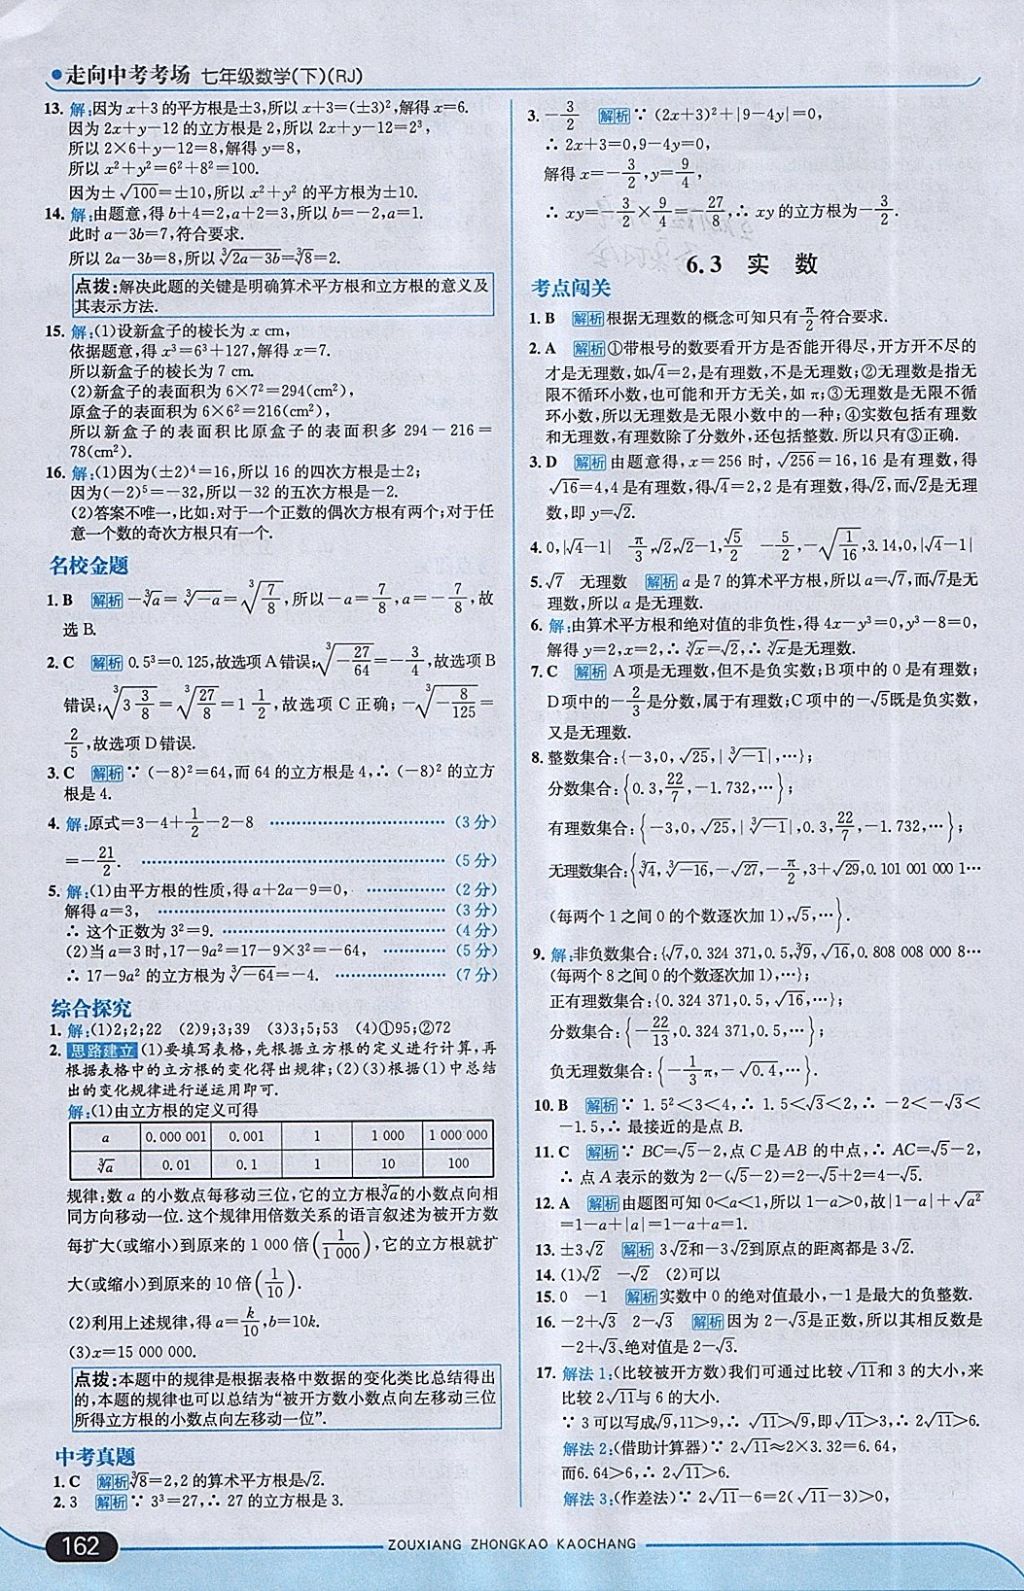 走向中考考场 七年级数学(下)(RJ)
13. 解:因为x+3的平方根是±3,所以x+3=(±3)²,解得x=6.
因为2x+y−12的立方根是2,所以2x+y−12=2³,
所以2×6+y−12=8,解得y=8,
所以x²+y²=6²+8²=100.
因为±√100=±10,所以x²+y²的平方根为±10.
14. 解:由题意,得b+4=2,a+2=3,所以b=−2,a=1.
此时a−3b=7,符合要求.
所以2a−3b=8,所以∛(2a−3b)=∛8=2.
点拨:解决此题的关键是明确算术平方根和立方根的意义及
其表示方法.
15. 解:(1)设新盒子的棱长为x cm,
依据题意,得x³=6³+127,解得x=7.
所以新盒子的棱长为7 cm.
(2)新盒子的表面积为6×7²=294(cm²),
原盒子的表面积为6×6²=216(cm²),
所以新盒子的表面积比原盒子的表面积多294−216=
78(cm²).
16. 解:(1)因为(±2)⁴=16,所以16的四次方根是±2;
因为(−2)⁵=−32,所以−32的五次方根是−2.
(2)答案不唯一,比如:对于一个正数的偶次方根有两个;对于任
意一个数的奇次方根只有一个.
名校金题
1. B 解析 −∛a=∛(−a)=∛(7/8),所以−a=7/8,a=−7/8,故
选B.
2. C 解析 0.5³=0.125,故选项A错误;∛(−27/64)=−3/4,故选项B
错误;∛(3 3/8)=∛(27/8)=1 1/2,故选项C正确;−∛(−8/125)=
2/5,故选项D错误.
3. C 解析 ∵(−8)²=64,而64的立方根是4,∴(−8)²的立方
根是4.
4. 解:原式=3−4+1/2−2−8 ……(3分)
=−21/2. ……(5分)
5. 解:(1)由平方根的性质,得a+2a−9=0, ……(2分)
解得a=3, ……(3分)
∴这个正数为3²=9. ……(4分)
(2)当a=3时,17−9a²=17−9×3²=−64, ……(5分)
∴17−9a²的立方根为∛−64=−4. ……(7分)
综合探究
1. 解:(1)2;2;22 (2)9;3;39 (3)3;5;53 (4)①95;②72
2. 思路建立 (1)要填写表格,先根据立方根的定义进行计算,再
根据表格中的立方根的变化得出规律;(2)(3)根据(1)中总结
出的变化规律进行逆运用即可.
解:(1)由立方根的定义可得
a 0.000 001 0.001 1 1 000 1 000 000
∛a 0.01 0.1 1 10 100
规律:数a的小数点每移动三位,它的立方根∛a的小数点向相
同方向移动一位.这个规律用倍数关系的语言叙述为被开方数
每扩大(或缩小)到原来的1 000倍(1/1 000),它的立方根就扩
大(或缩小)到原来的10倍(1/10).
(2)利用上述规律,得a=k/10,b=10k.
(3)x=15 000 000.
点拨:本题中的规律是根据表格中数据的变化类比总结得出
的,本题的规律也可以总结为“被开方数小数点向左移动三位
所得立方根的小数点向左移动一位”.
中考真题
1. C 解析 ∛8=2,2的算术平方根是√2.
2. 3 解析 ∵3³=27,∴27的立方根是3.
3. −3/2 解析 ∵(2x+3)²+|9−4y|=0,
∴2x+3=0,9−4y=0,
解得x=−3/2,y=9/4,
∴xy=−3/2×9/4=−27/8,∴xy的立方根为−3/2.
6.3 实 数
考点闯关
1. B 解析 根据无理数的概念可知只有π/2符合要求.
2. A 解析 ①带根号的数要看开方是否能开得尽,开方开不尽的
才是无理数,如√4=2,是有理数,不是无理数;②无理数是指无
限不循环小数,也可能和开方无关,如π;③无理数是无限不循
环小数,所以无理数是无限小数中的一种;④实数包括有理数
和无理数,有理数除了分数外,还包括整数.所以只有③正确.
3. D 解析 由题意得,x=256时,√256=16,16是有理数,得
√16=4,4是有理数,得√4=2,2是有理数,得√2,而√2是无理
数,即y=√2.
4. 0,|√4−1| π/3,√2,√2−1,√5/2 −5/2,−√(1/16),3.14,0,|√4−1|
5. √7 无理数 解析 a是7的算术平方根,所以a=√7,而√7是无
理数,所以a是无理数.
6. 解:由算术平方根和绝对值的非负性,得4x−y³=0,y³−8=0,
解得y=2,x=2,∴√x=√2,∴√x是无理数.
7. C 解析 A项是无理数,但不是负实数;B项中的0是有理数;
D项中的−2/3是分数,属于有理数;C项中的−√5既是负实数,
又是无理数.
8. 整数集合:{−3,0,√25,|∛−1|,…};
分数集合:{0.3,22/7,−1.732,…};
有理数集合:{−3,0,√25,|∛−1|,0.3,22/7,−1.732,…};
无理数集合:{∛4,∛−16,−√27,−π/2,3+√29,0.101 001 000 1…
(每两个1之间0的个数逐次加1),√5,…}.
9. 解:非负数集合:{√7,0.324 371,0.5,∛9,√16,0.808 008 000 8…
(每两个8之间0的个数逐次加1),…};
正有理数集合:{0.324 371,0.5,√16,…};
分数集合:{−22/13,0.324 371,0.5,…};
负无理数集合:{−1/3π,−√0.4,…}.
10. B 解析 ∵1.5²<3<4,∴1.5<√3<2,∴−2<−√3<
−1.5,∴最接近的是点B.
11. C 解析 ∵BC=√5−2,点C是AB的中点,∴AC=√5−2,
∴点A表示的数为2−(√5−2)=2−√5+2=4−√5.
12. A 解析 由题图可知0<a<1,所以1−a>0,故|1−a|+√a²
=1−a+|a|=1−a+a=1.
13. ±3√2 解析 3√2和−3√2到原点的距离都是3√2.
14. (1)√2 −√2 (2)可以
15. 0 −1 解析 实数中0的绝对值最小,−1是最大的负整数.
16. −2+√3 2−√3 解析 因为2−√3是正数,所以其相反数是
−2+√3、绝对值是2−√3.
17. 解法1:(比较被开方数)我们可通过比较√11和3的大小,来
比较2√11与6的大小.
∵3可以写成√9,11>9,∴√11>√9,即√11>3,∴2√11>6.
解法2:(借助计算器)∵2√11≈2×3.32=6.64,
而6.64>6,∴2√11>6.
解法3:(作差法)∵2√11−6=2(√11−3)>0,
162
ZOUXIANG ZHONGKAO KAOCHANG